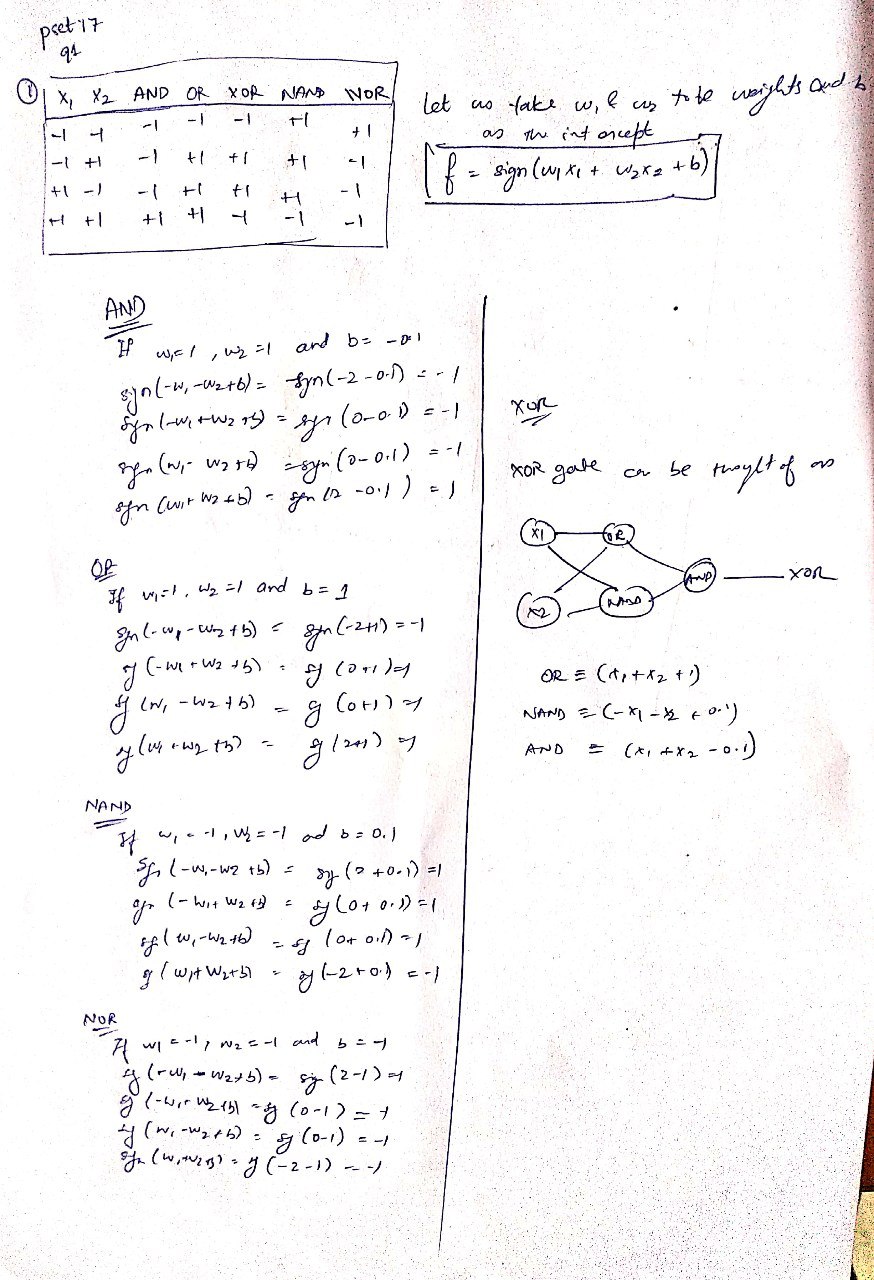 pset 17
q1
① X₁ X₂ AND OR XOR NAND NOR
-1 -1 -1 -1 -1 +1 +1
-1 +1 -1 +1 +1 +1 -1
+1 -1 -1 +1 +1 +1 -1
+1 +1 +1 +1 -1 -1 -1
Let us take w₁ & w₂ to be weights and b
as the intercept
f = sign(w₁x₁ + w₂x₂ + b)
AND
If w₁=1, w₂=1 and b= -0.1
sgn(-w₁-w₂+b) = sgn(-2-0.1) = -1
sgn(-w₁+w₂+b) = sgn(0-0.1) = -1
sgn(w₁-w₂+b) = sgn(0-0.1) = -1
sgn(w₁+w₂+b) = sgn(2-0.1) = 1
OR
If w₁=1, w₂=1 and b=1
sgn(-w₁-w₂+b) = sgn(-2+1) = -1
(-w₁+w₂+b) = (0+1)=1
(w₁-w₂+b) = (0+1)=1
(w₁+w₂+b) = (2+1)=1
NAND
If w₁=-1, w₂=-1 and b=0.1
sgn(-w₁-w₂+b) = sg(2+0.1)=1
sgn(-w₁+w₂+b) = sg(0+0.1)=1
sg(w₁-w₂+b) = sg(0+0.1)=1
(w₁+w₂+b) = sg(-2+0.1) = -1
NOR
If w₁=-1, w₂=-1 and b=-1
(-w₁-w₂+b) = sg(2-1)=1
(-w₁+w₂+b) = sg(0-1)=-1
(w₁-w₂+b) = sg(0-1) = -1
sgn(w₁+w₂+b) = (-2-1) = -1
XOR
XOR gate can be thought of as
X1 OR
AND XOR
X2 NAND
OR ≡ (x₁+x₂+1)
NAND ≡ (-x₁-x₂+0.1)
AND ≡ (x₁+x₂-0.1)